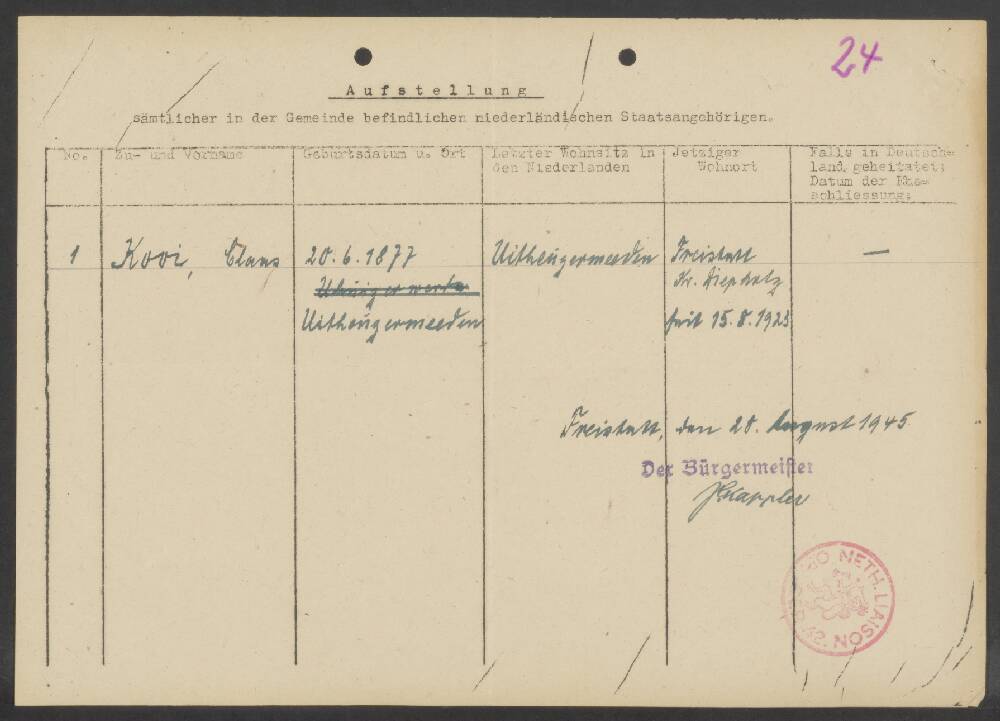 24
Aufstellung
sämtlicher in der Gemeinde befindlichen niederländischen Staatsangehörigen.
No. Zu- und Vorname Geburtsdatum u. Ort Letzter Wohnsitz in Jetziger Falls in Deutsch=
den Niederlanden Wohnort land geheitatet:
Datum der Ehe=
schliessung:
1 Kooi, Claas 20.6.1877 Uitheugermeeden Freistatt —
Kr. Diepholz
Uitheugermeeden seit 15.8.1925
Freistatt, den 28. August 1945
Der Bürgermeister
NETH. LIAISON